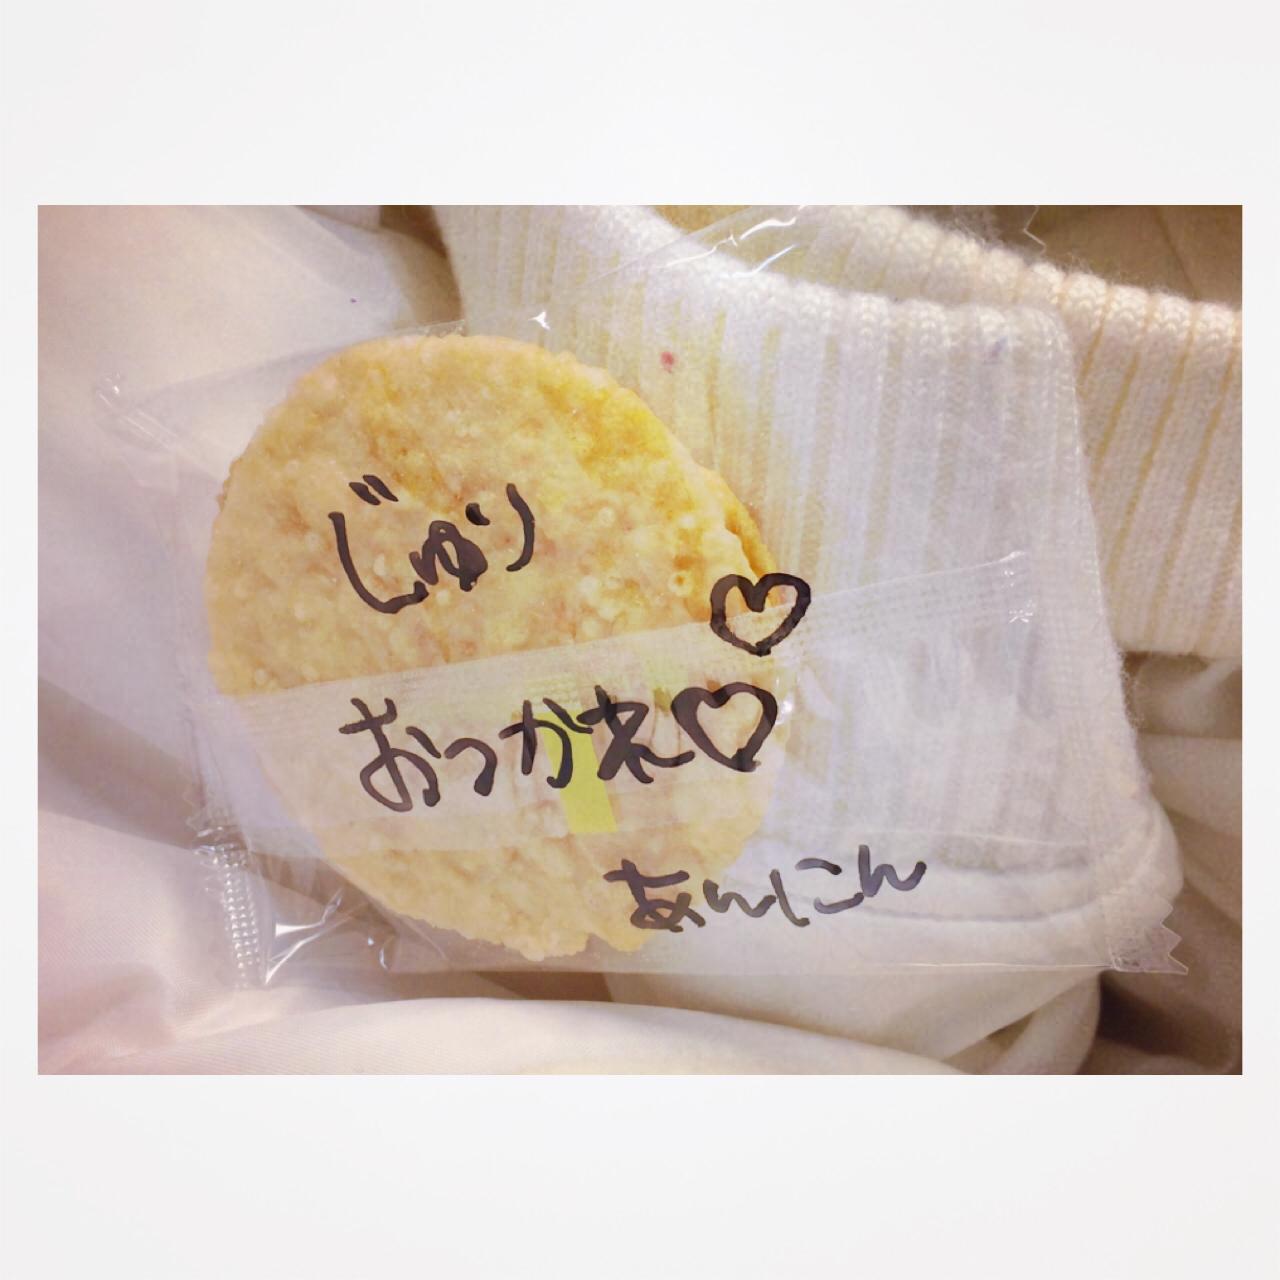 じゅり
♡
おつかれ♡
あんにん